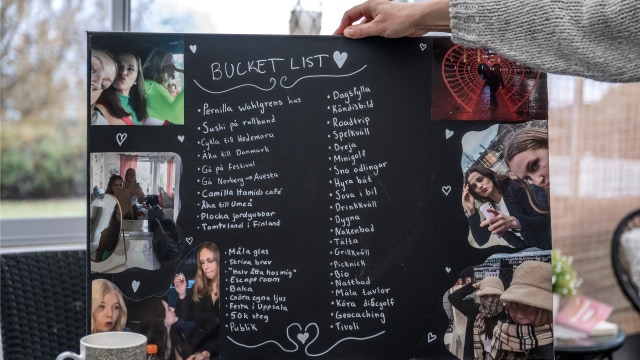 BUCKET LIST
• Pernilla Wahlgrens hus
• Sushi på rullband
• Cykla till Hedemora
• Åka till Danmark
• Gå på festival
• Gå Norberg → Avesta
• Camilla Hamids café
• Åka till Umeå
• Plocka jordgubbar
• Tomteland i Finland
• Måla glas
• Skriva brev
• "Halv åtta hos mig"
• Escape room
• Baka
• Göra egna ljus
• Festa i Uppsala
• 50k steg
• Publik
• Dagsfylla
• Kändisbild
• Roadtrip
• Spelkväll
• Dreja
• Minigolf
• Sno odlingar
• Hyra båt
• Sova i bil
• Drinkkväll
• Dygna
• Nakenbad
• Tälta
• Grillkväll
• Picknick
• Bio
• Nattbad
• Måla tavlor
• Köra discgolf
• Geocaching
• Tivoli